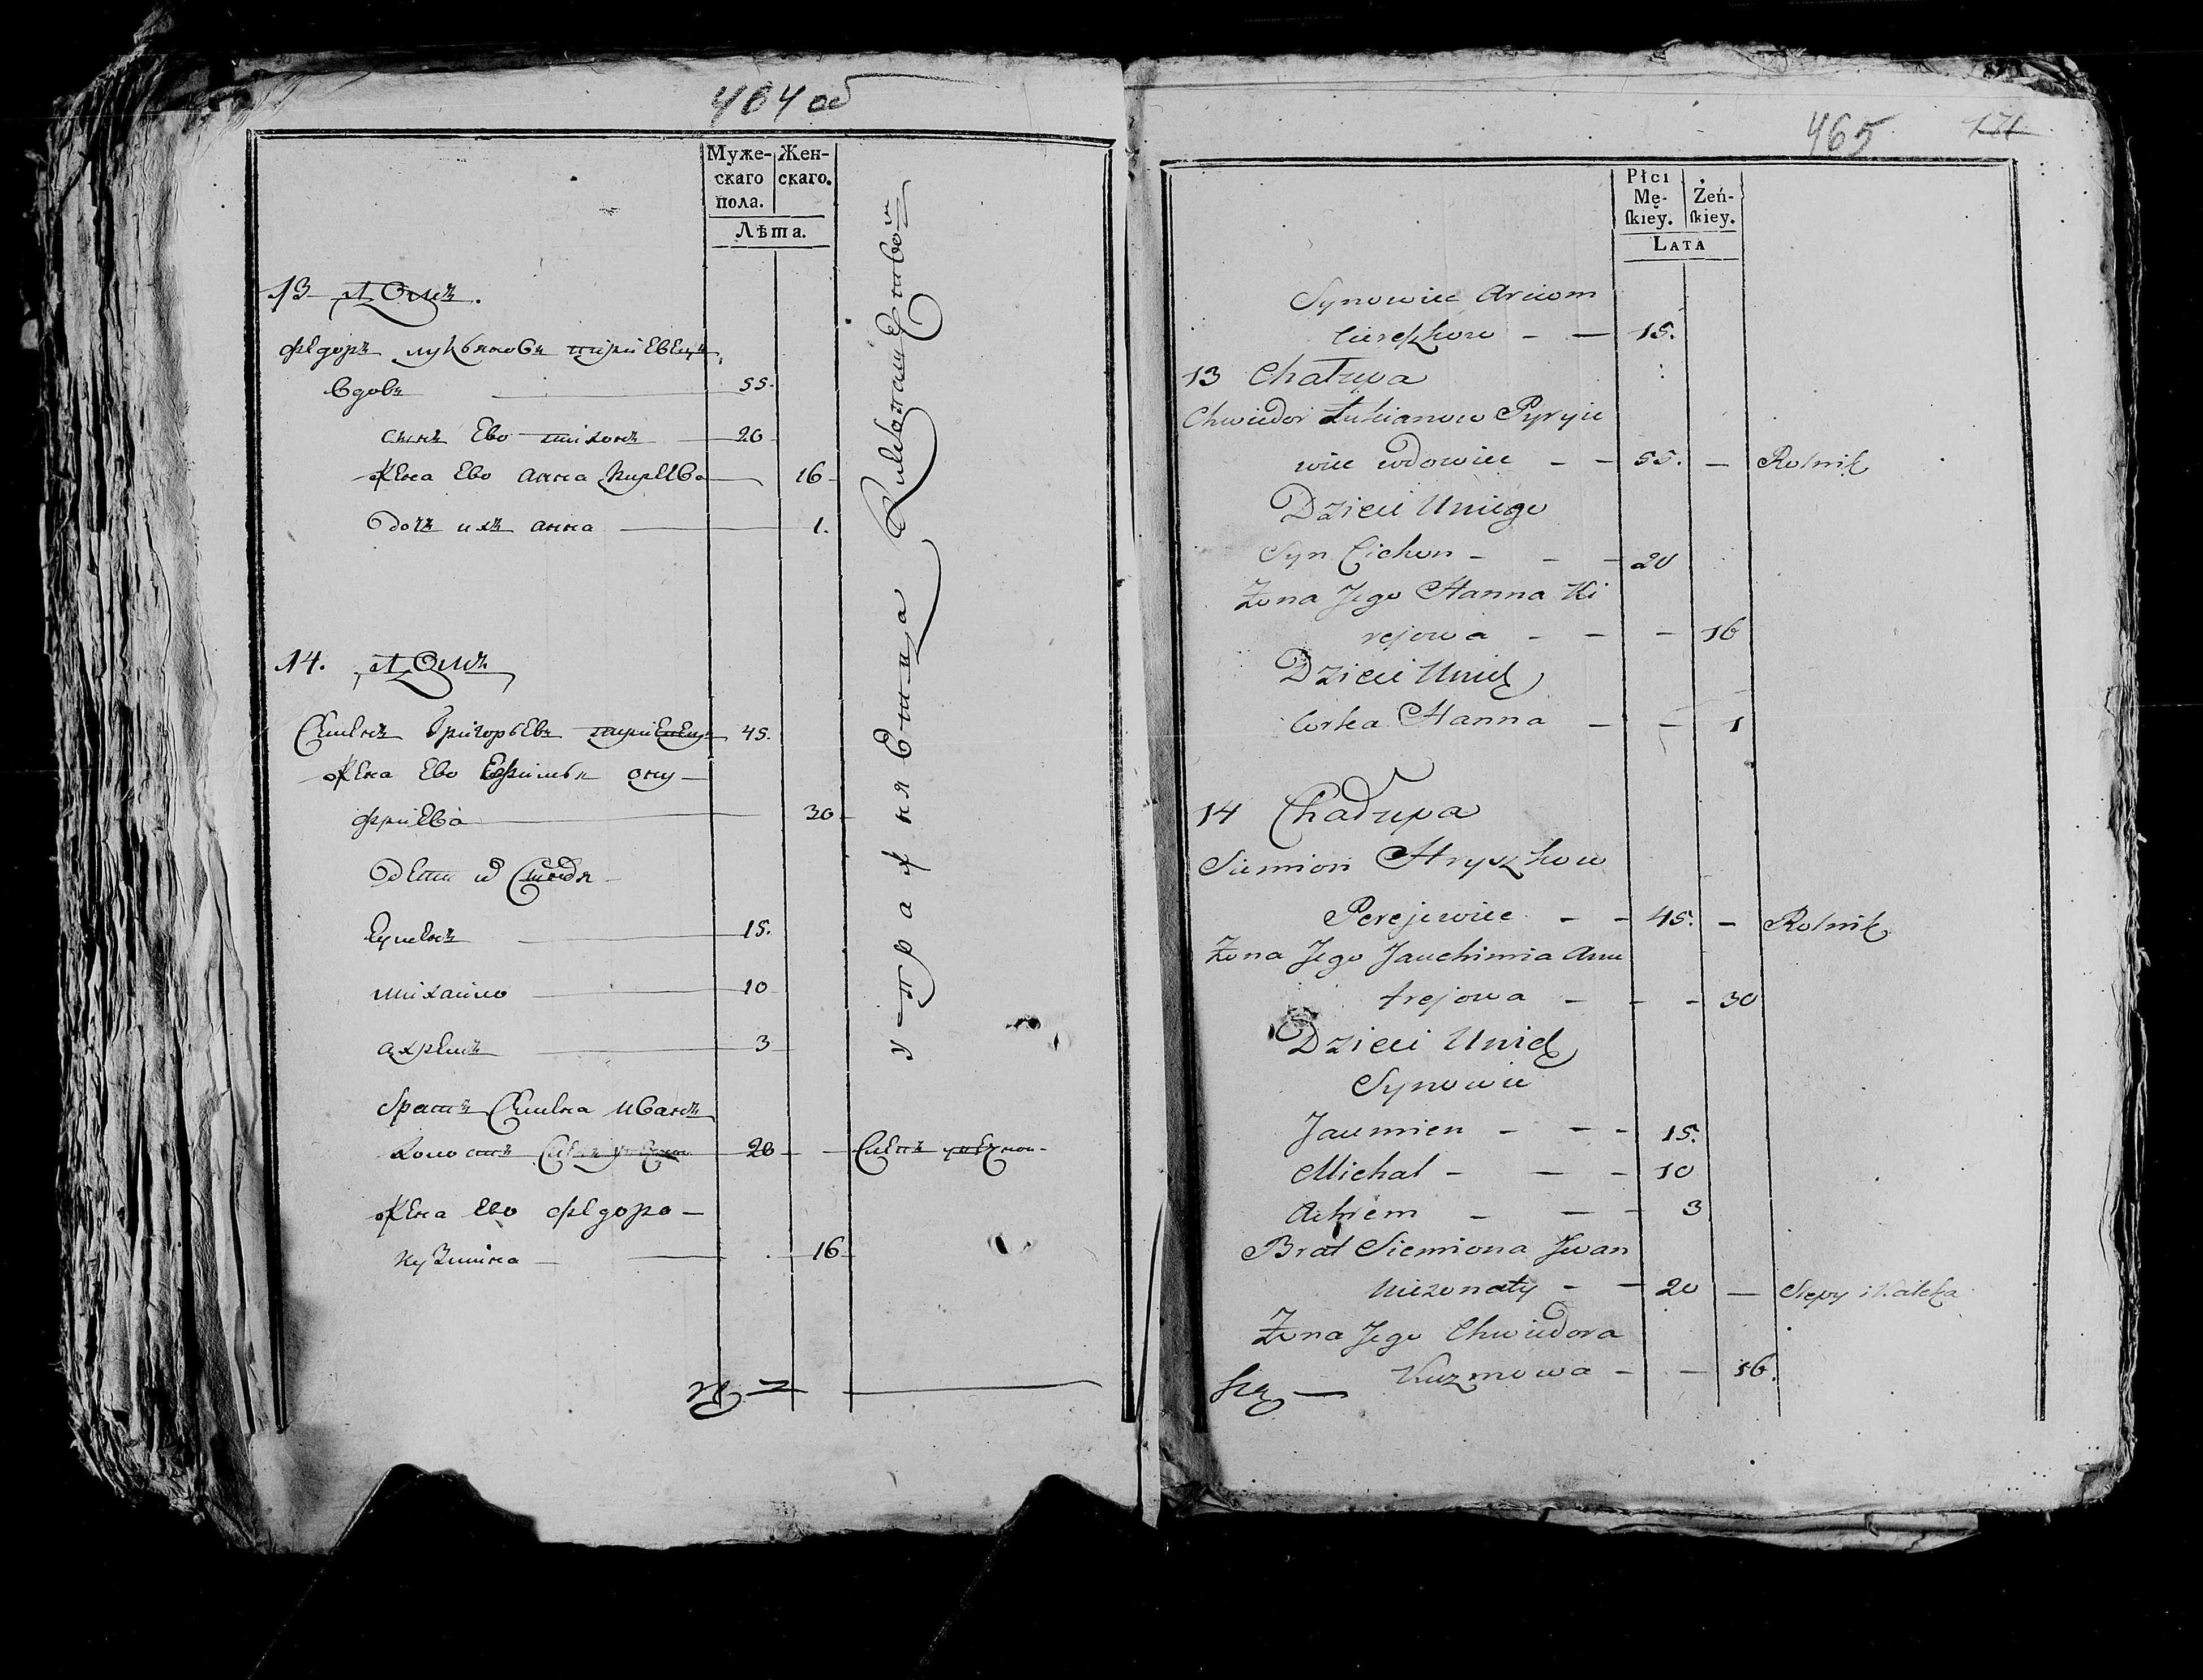 464 об
Муже-
скаго
пола.
Жен-
скаго.
Лѣта.
13 домъ.
Федоръ Лукьяновъ пириевецъ
вдовъ 55.
сынъ Ево тихонъ 20
Жена Ево анна кирѣева 16
дочь ихъ анна 1.
14. домъ
Семенъ Григорьевъ 45.
Жена Ево Ефимья ону-
фриева 30
дети
Еуменъ 15.
михайло 10
ахремъ 3
братъ Семена иванъ
холостъ 20 Слепъ
Жена Ево федора
кузмина 16
упражняетца хлебопашествомъ
465
171
Płci
Mę-
skiey.
Żeń-
skiey.
LATA
Synowiec Arciom
Cereszkow - - 15.
13 Chałupa
Chwiedor Łukianow Pyryie
wiec wdowiec - - 55. - Rolnik
Dzieci Uniego
Syn Cichon - - - 20
Żona Jego Hanna Ki
rejowa - - - 16
Dzieci Unich
Corka Hanna - - 1
14 Chałupa
Siemion Hryszkow
Perejewiec - - 45. - Rolnik
Żona Jego Jauchimia Anu
frejowa - - - 30
Dzieci Unich
Synowie
Jaumien - - - 15.
Michał - - - 10
Achrem - - - 3
Brat Siemiona Jwan
nieżonaty - - 20 - Slepy i Kaleka
Żona Jego Chwiedora
Kuzmowa - - 16.